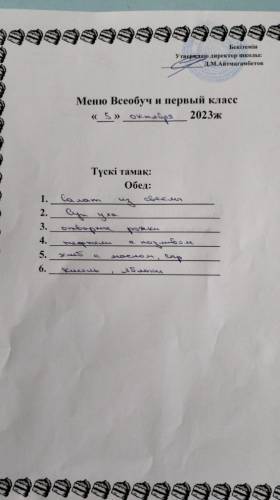 Бекітемін
Утверждаю директор школы:
Д.М.Айтмагамбетов
Меню Всеобуч и первый класс
« 5 » октября 2023ж
Түскі тамақ:
Обед:
1. Салат из свеклы
2. Суп уха
3. отварные рожки
4. тефтели с подливом
5. хлеб с маслом, сыр
6. кисель, яблоки